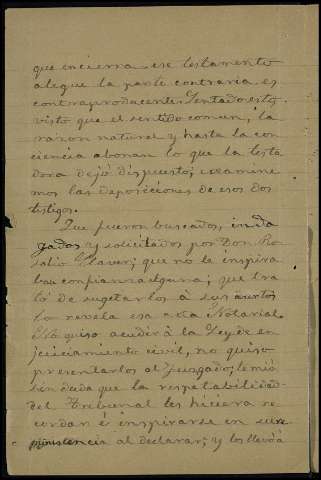 que encierra ese testamento
alegue la parte contraria es
contraproducente. Sentado esto,
visto que el sentido comun, la
razon natural y hasta la con
ciencia abonan lo que la testa
dora dejó dispuesto; examine
mos las deposiciones de esos dos
testigos.
Que fueron buscados, inda
gados y solicitados por Don Ro
salio Claver; que no le inspira
ban confianza alguna; que tra
tó de sugetarlos á sus
lo revela esa acta Notarial.
No quiso acudir á la Ley de en
juiciamiento civil, no quiso
presentarlos al Juzgado; temió
sin duda que la respetabilidad
del Tribunal les hiciera re
cordar é inspirarse en su
al declarar; y los llevó á